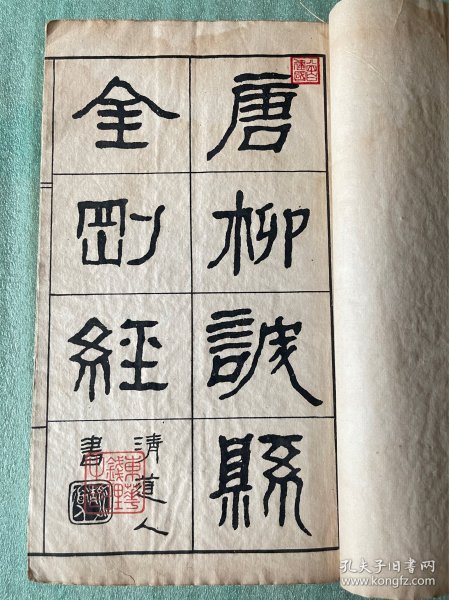 唐柳誠縣
金剛經
清道人
書
孔夫子旧书网
www.kongfz.com